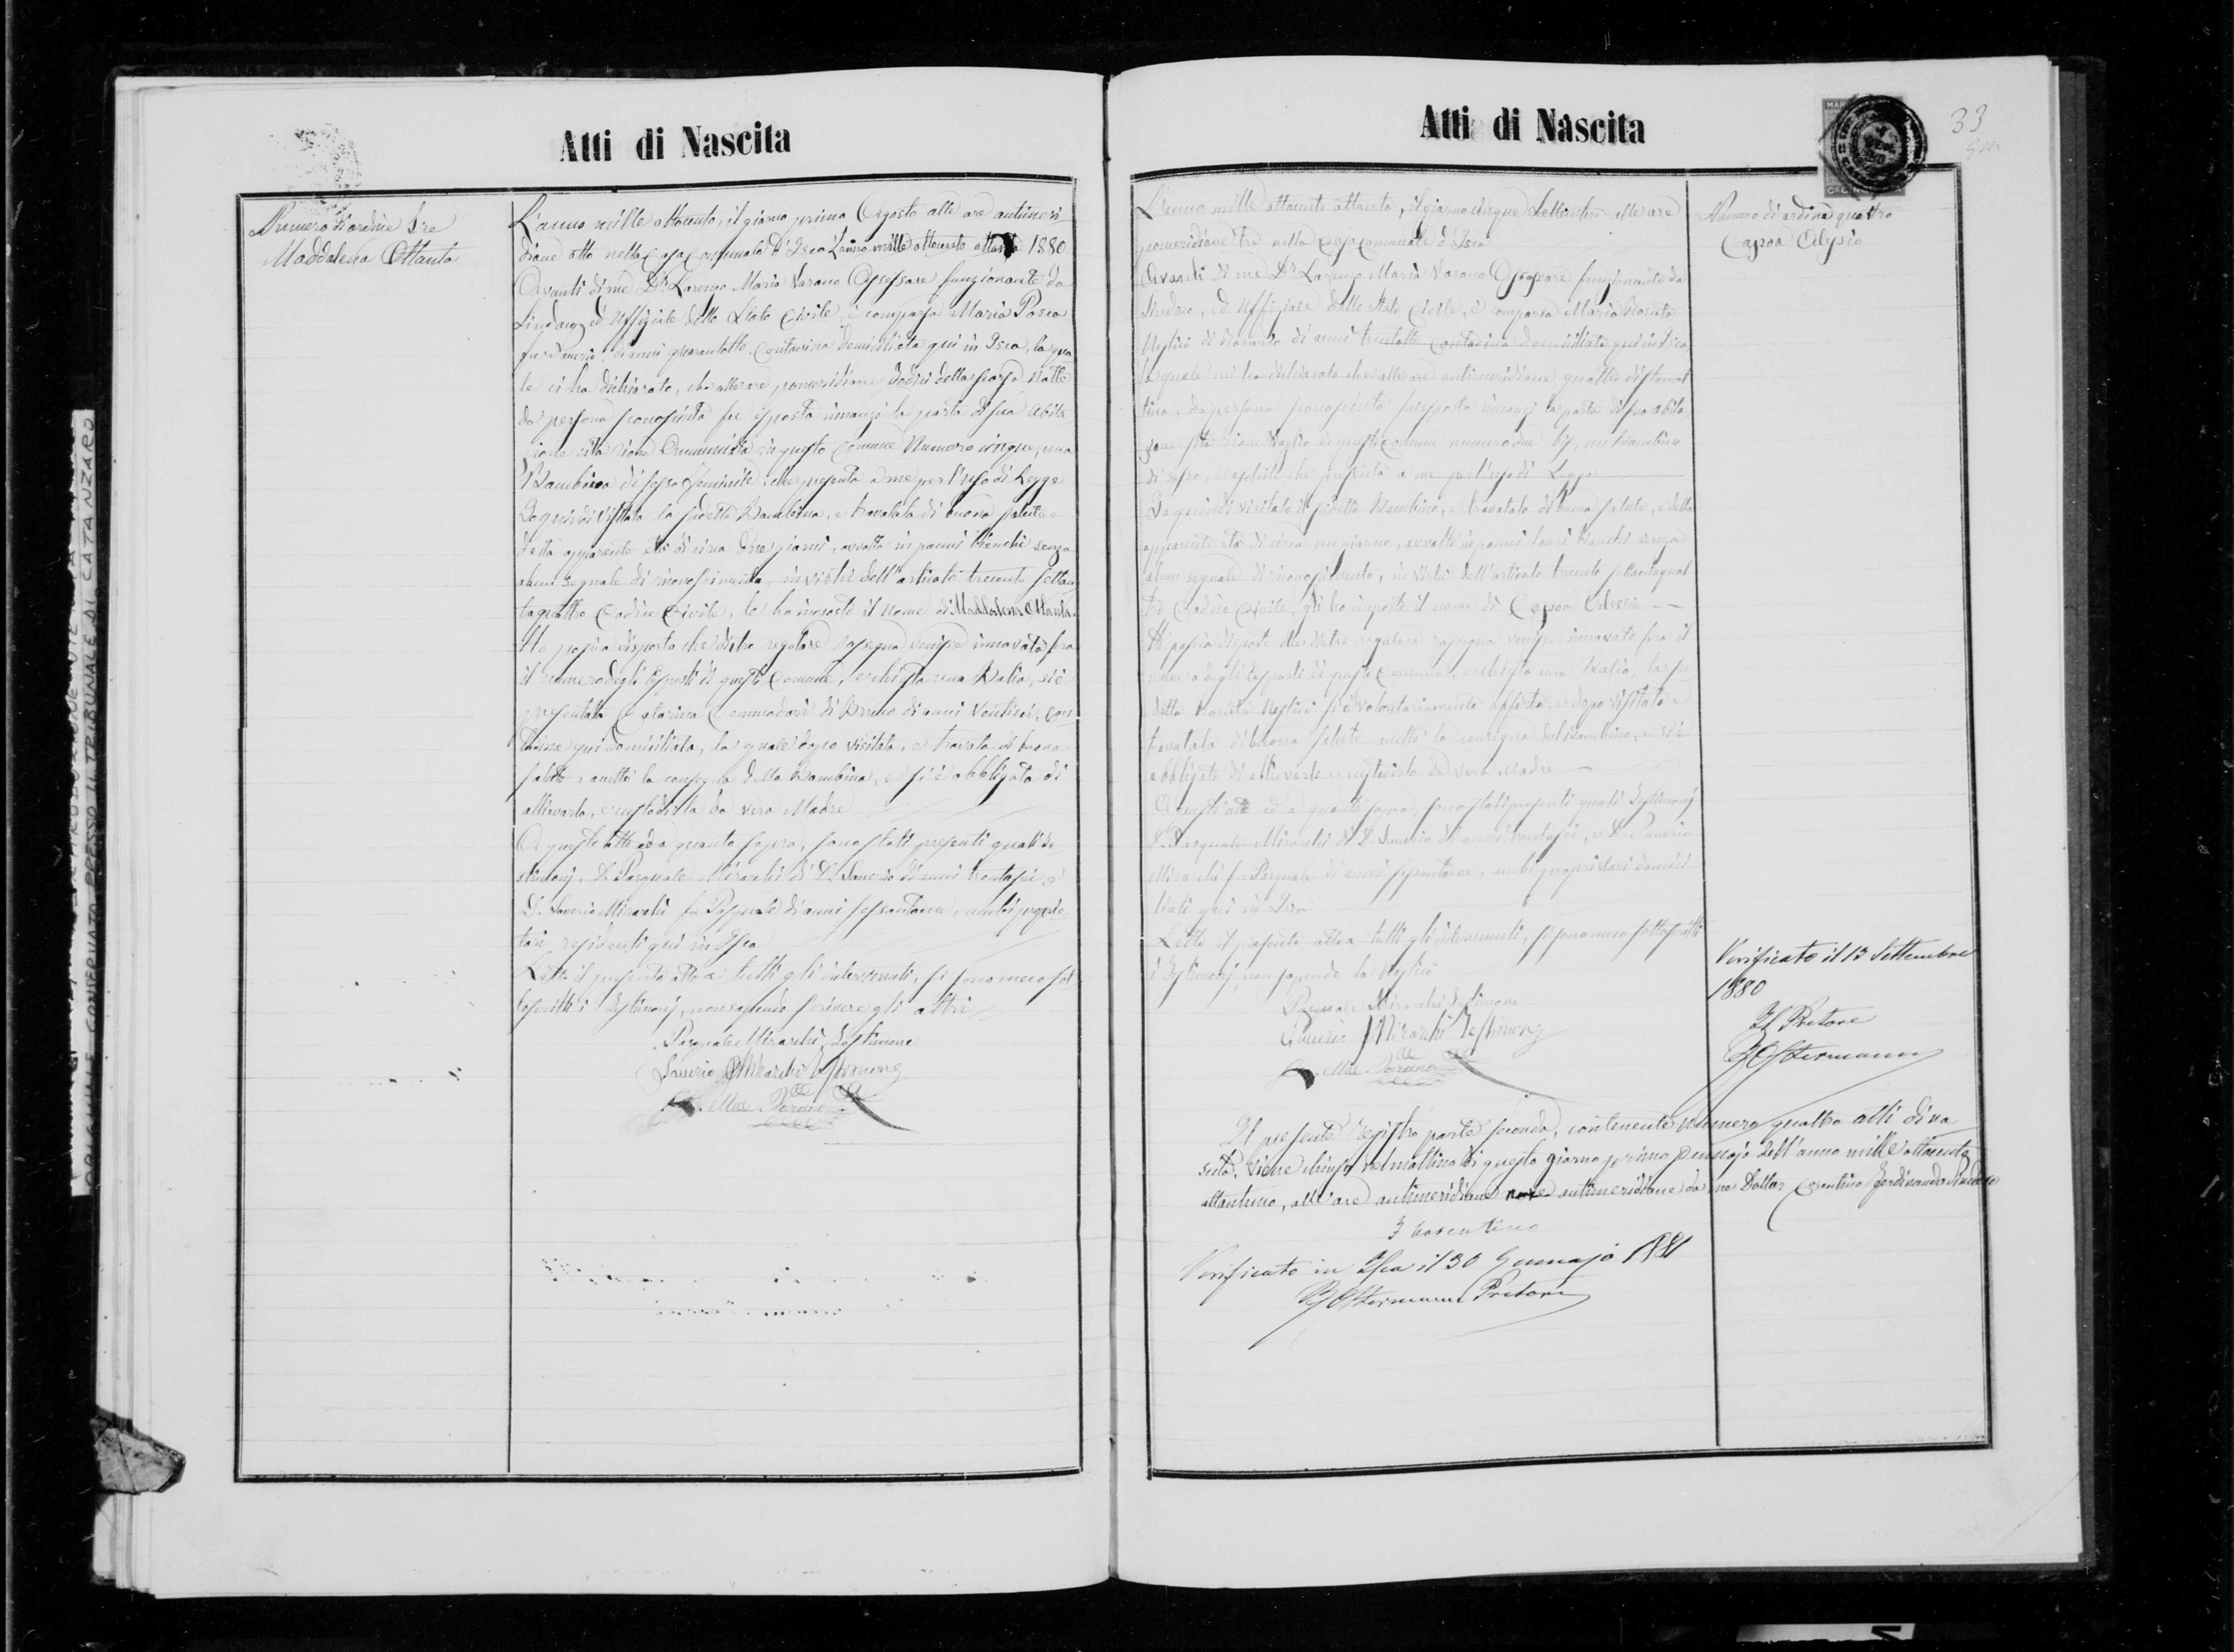 Atti di Nascita
Numero di ordine Tre
Maddalena Ottanta
L'anno mille ottocento, il giorno primo Agosto alle ore antimeri
diane otto nella Casa Comunale d'Isca L'anno mille ottocento ottanta 1880
Avanti di me Dr Lorenzo Maria Varano Assessore funzionante da
Sindaco, ed Uffiziale dello Stato Civile, è comparsa Maria
fu Saverio, di anni quarantotto Contadina domiciliata qui in Isca, la qua
le ci ha dichiarato, che alle ore pomeridiane dodici della scorsa Notte
da persona sconosciuta fu esposta innanzi la porta di sua abita
zione sita rione in questo Comune Numero cinque, una
Bambina di sesso femminile che presenta a me per l'uso di Legge
Da quindi visitata la sudetta Bambina, e trovatala di buona salute e
della apparente età di circa due giorni, avvolta in panni bianchi senza
alcun segnale di riconoscimento, in virtù dell'articolo trecento settan
taquattro Codice Civile, le ho imposto il Nome di Maddalena Ottanta.
Ho poscia disposto che dietro regolare rassegna venisse innovata fra
il numero degli Esposti di questo Comune, e chiesta una Balia, si è
presentata Catarina Commodari di Bruno di anni Ventisei, Con
tadina qui domiciliata, la quale dopo visitata, e trovata di buona
salute, accettò la consegna della Bambina, e si è obbligata di
allevarla, e custodirla da vera Madre
A questo atto ed a quanto sopra, sono stati presenti quali te
stimonj, D. Pasquale Mirarchi di D. Saverio di anni trentasei, e
D. Saverio Mirarchi fu Pasquale di anni sessantanove, ambi proprie
tari residenti qui in Isca
Letto il presente atto a tutti gli intervenuti, si sono meco sot
toscritti i Testimonj, non sapendo scrivere gli altri
Pasquale Mirarchi Testimone
Saverio Mirarchi Testimone
L. Mia Varano
Atti di Nascita
33
Numero di ordine quattro
Capoa Alessio
L'anno mille ottocento ottanta, il giorno cinque Settembre alle ore
pomeridiane tre nella Casa Comunale d'Isca
Avanti di me Dr Lorenzo Maria Varano Assessore funzionante da
Sindaco, ed Uffiziale dello Stato Civile, è comparsa Maria Rosaria
di Rosario di anni trentotto Contadina domiciliata qui in Isca
la quale mi ha dichiarato che alle ore antimeridiane quattro di stamat
tina, da persona sconosciuta fu esposto innanzi la porta di sua abita
zione sita rione Vaglio in questo Comune numero due bis, un Bambino
di sesso maschile che presenta a me per l'uso di Legge
Da quindi visitato il sudetto Bambino, e trovatolo di buona salute, e della
apparente età di circa un giorno, avvolto in panni bianchi senza
alcun segnale di riconoscimento, in virtù dell'articolo trecento settantaquat
tro Codice Civile, gli ho imposto il nome di Capoa Alessio
Ho poscia disposto che dietro regolare rassegna venisse innovato fra il
numero degli Esposti di questo Comune, e chiesta una Balia, la su
detta Rosaria si è volontariamente offerta, e dopo visitata e
trovatala di buona salute, accettò la consegna del Bambino, e si è
obbligata di allevarlo e custodirlo da vera Madre
A questo atto ed a quanto sopra, sono stati presenti quali Testimonj
D. Pasquale Mirarchi di D. Saverio di anni trentasei, e D. Saverio
Mirarchi fu Pasquale di anni sessantanove, ambi proprietari domici
liati qui in Isca
Letto il presente atto a tutti gli intervenuti, si sono meco sottoscritti
i Testimonj, non sapendo la
Pasquale Mirarchi Testimone
Saverio Mirarchi Testimone
L. Mia Varano
Verificato il 13 Settembre
1880
Il Pretore
Il presente registro parte seconda, contenente Numero quattro atti di na
scita, viene chiuso nel mattino di questo giorno primo Gennajo dell'anno mille ottocento
ottantuno, alle ore antimeridiane nove antimeridiane da me Dottor Cosentino Ferdinando Sindaco
F Cosentino
Verificato in Isca il 30 Gennajo 1881
Pretore
ORIGINALE CONSERVATO PRESSO IL TRIBUNALE DI CATANZARO